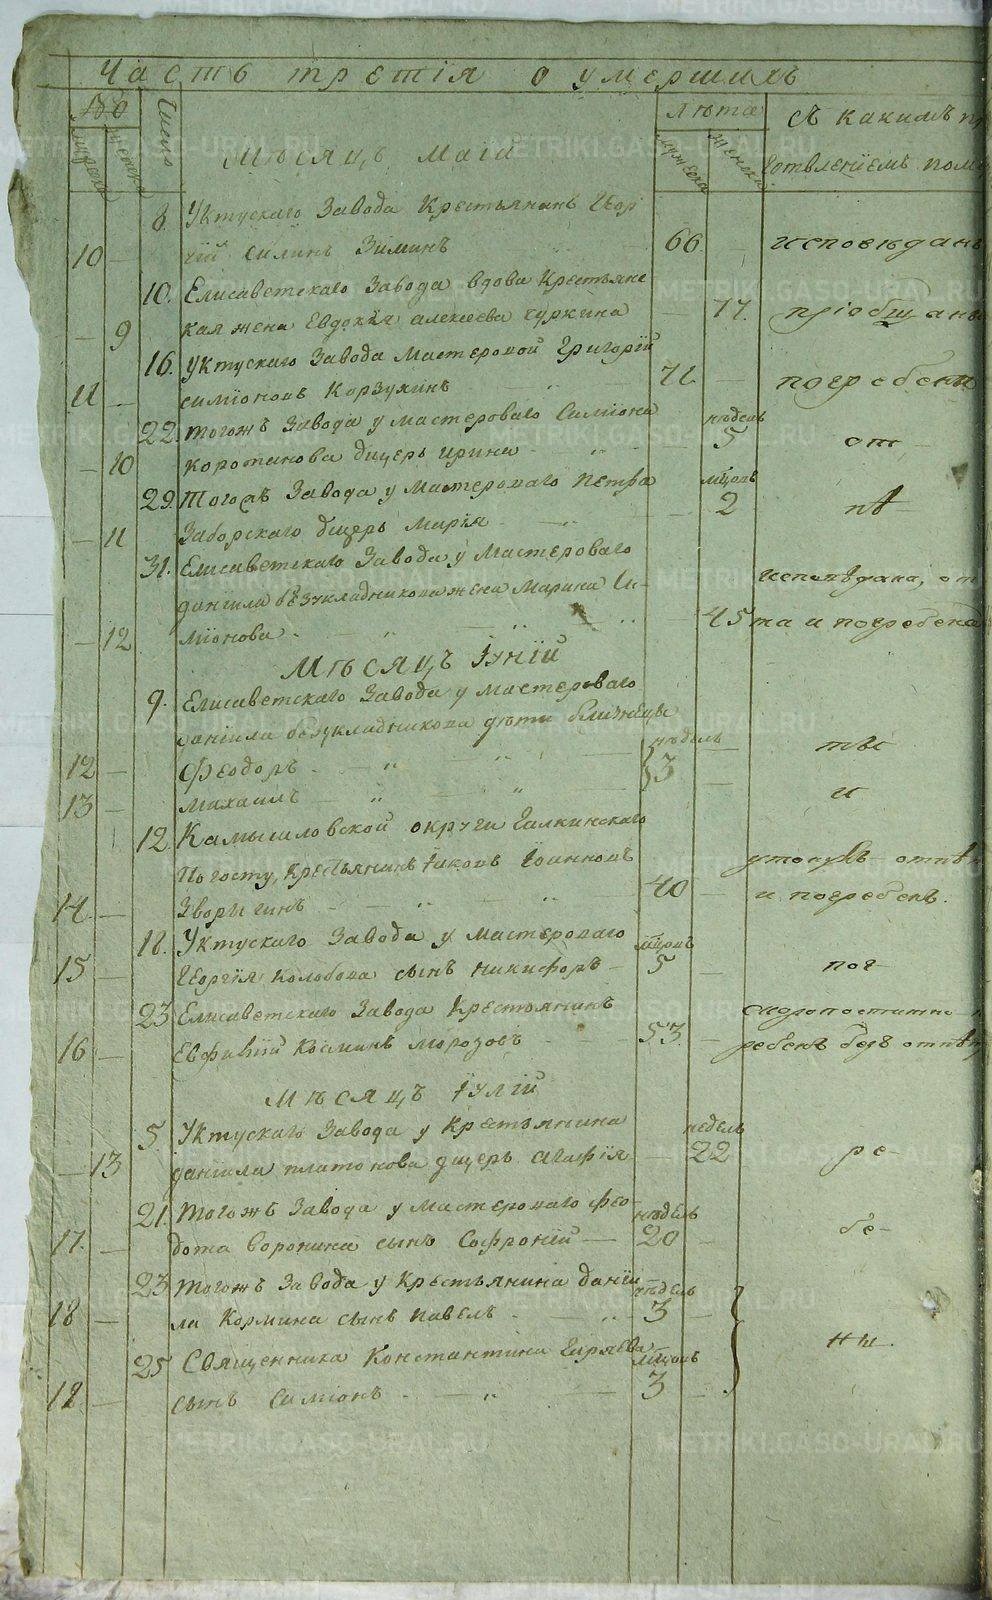 Часть третія о умершихъ
№
Число
Лѣта
Съ какимъ
мужеска
женска
мужеска
женска
Мѣсяцъ Маій
8. Уктускаго Завода Крестьянинъ Геор
10 — гій Силинъ Зиминъ 66 — исповѣданъ
10. Елисаветскаго Завода вдова Крестьянс
— 9 кая жена Евдокія Алексеева Чуркина — 77. пріобщанъ
16. Уктускаго Завода Мастеровой Григорій
11 — Симіоновъ Корзухинъ 71 — погребены
22. тогожъ Завода у мастероваго Симіона недель
— 10 Коротанова дщерь Ирина — 5 от
29. Тогожъ Завода у Мастероваго Петра мцовъ
— 11 Заборскаго дщерь Марія — 2 пѣ—
31. Елисаветскаго Завода у Мастероваго
Даніила Безукладникова жена Марина Си- исповѣдана, от
— 12 міонова — 45 та и погребена
Мѣсяцъ Іуній
9. Елисаветскаго Завода у Мастероваго
Даніила Безукладникова дѣти близнецы недель
12 — Феодоръ 3 — тѣ
13 — Михаилъ — и
12 Камышловской округи Галкинскаго
Погосту, Крестьянинъ Іаковъ Іоанновъ утонувъ отпѣ
14 — Зворыгинъ 40 — и погребенъ.
18. Уктускаго Завода у Мастероваго мцовъ
15 — Георгія Колобова сынъ Никифоръ — 5 — пог
23 Елисаветскаго Завода Крестьянинъ скоропостижно
16 — Евфимій Косминъ Морозовъ 53. — ребенъ безъ отпѣ
Мѣсяцъ Іулій
5. Уктускаго Завода у Крестьянина недель
— 13 Даніила Платонова дщерь Агафія — 22 ре—
21. Тогожъ Завода у Мастероваго Фео недель
17. — дота Воронина сынъ Софроній — 20 — бе—
23 Тогожъ Завода у Крестьянина Даніи недель
18 — ла Кормина сынъ Павелъ — 3 —
25 Священника Константина мцовъ ны.
18. — сынъ Симіонъ — 3 —
METRIKI.GASO-URAL.RU